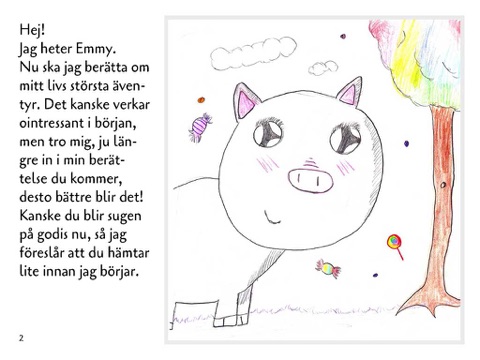 Hej!
Jag heter Emmy.
Nu ska jag berätta om
mitt livs största även-
tyr. Det kanske verkar
ointressant i början,
men tro mig, ju län-
gre in i min berät-
telse du kommer,
desto bättre blir det!
Kanske du blir sugen
på godis nu, så jag
föreslår att du hämtar
lite innan jag börjar.
2